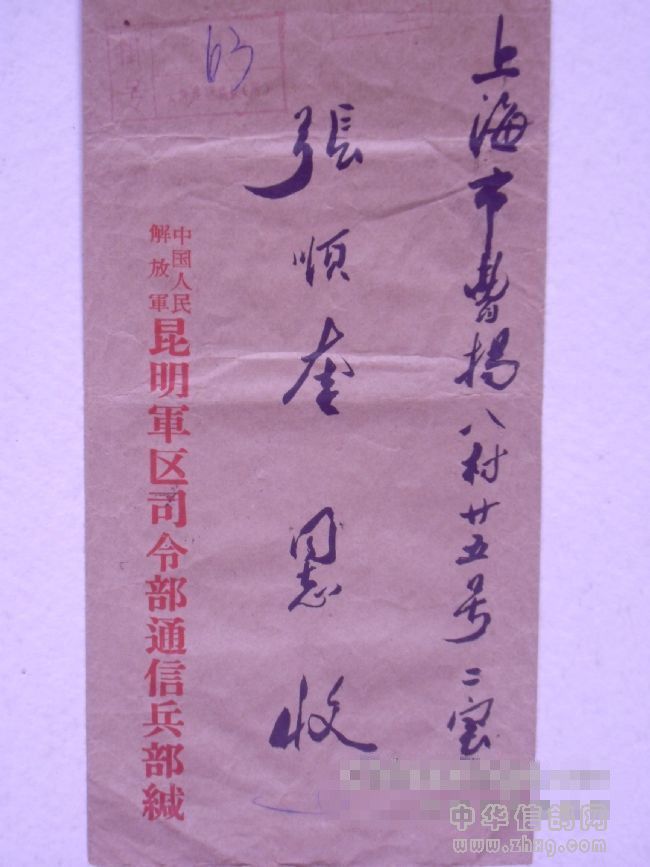 上海市曹楊八村廿五号二室
張順奎同志收
中国人民
解放軍
昆明軍区司令部通信兵部緘
63
中华信鸽网
www.zhxg.com